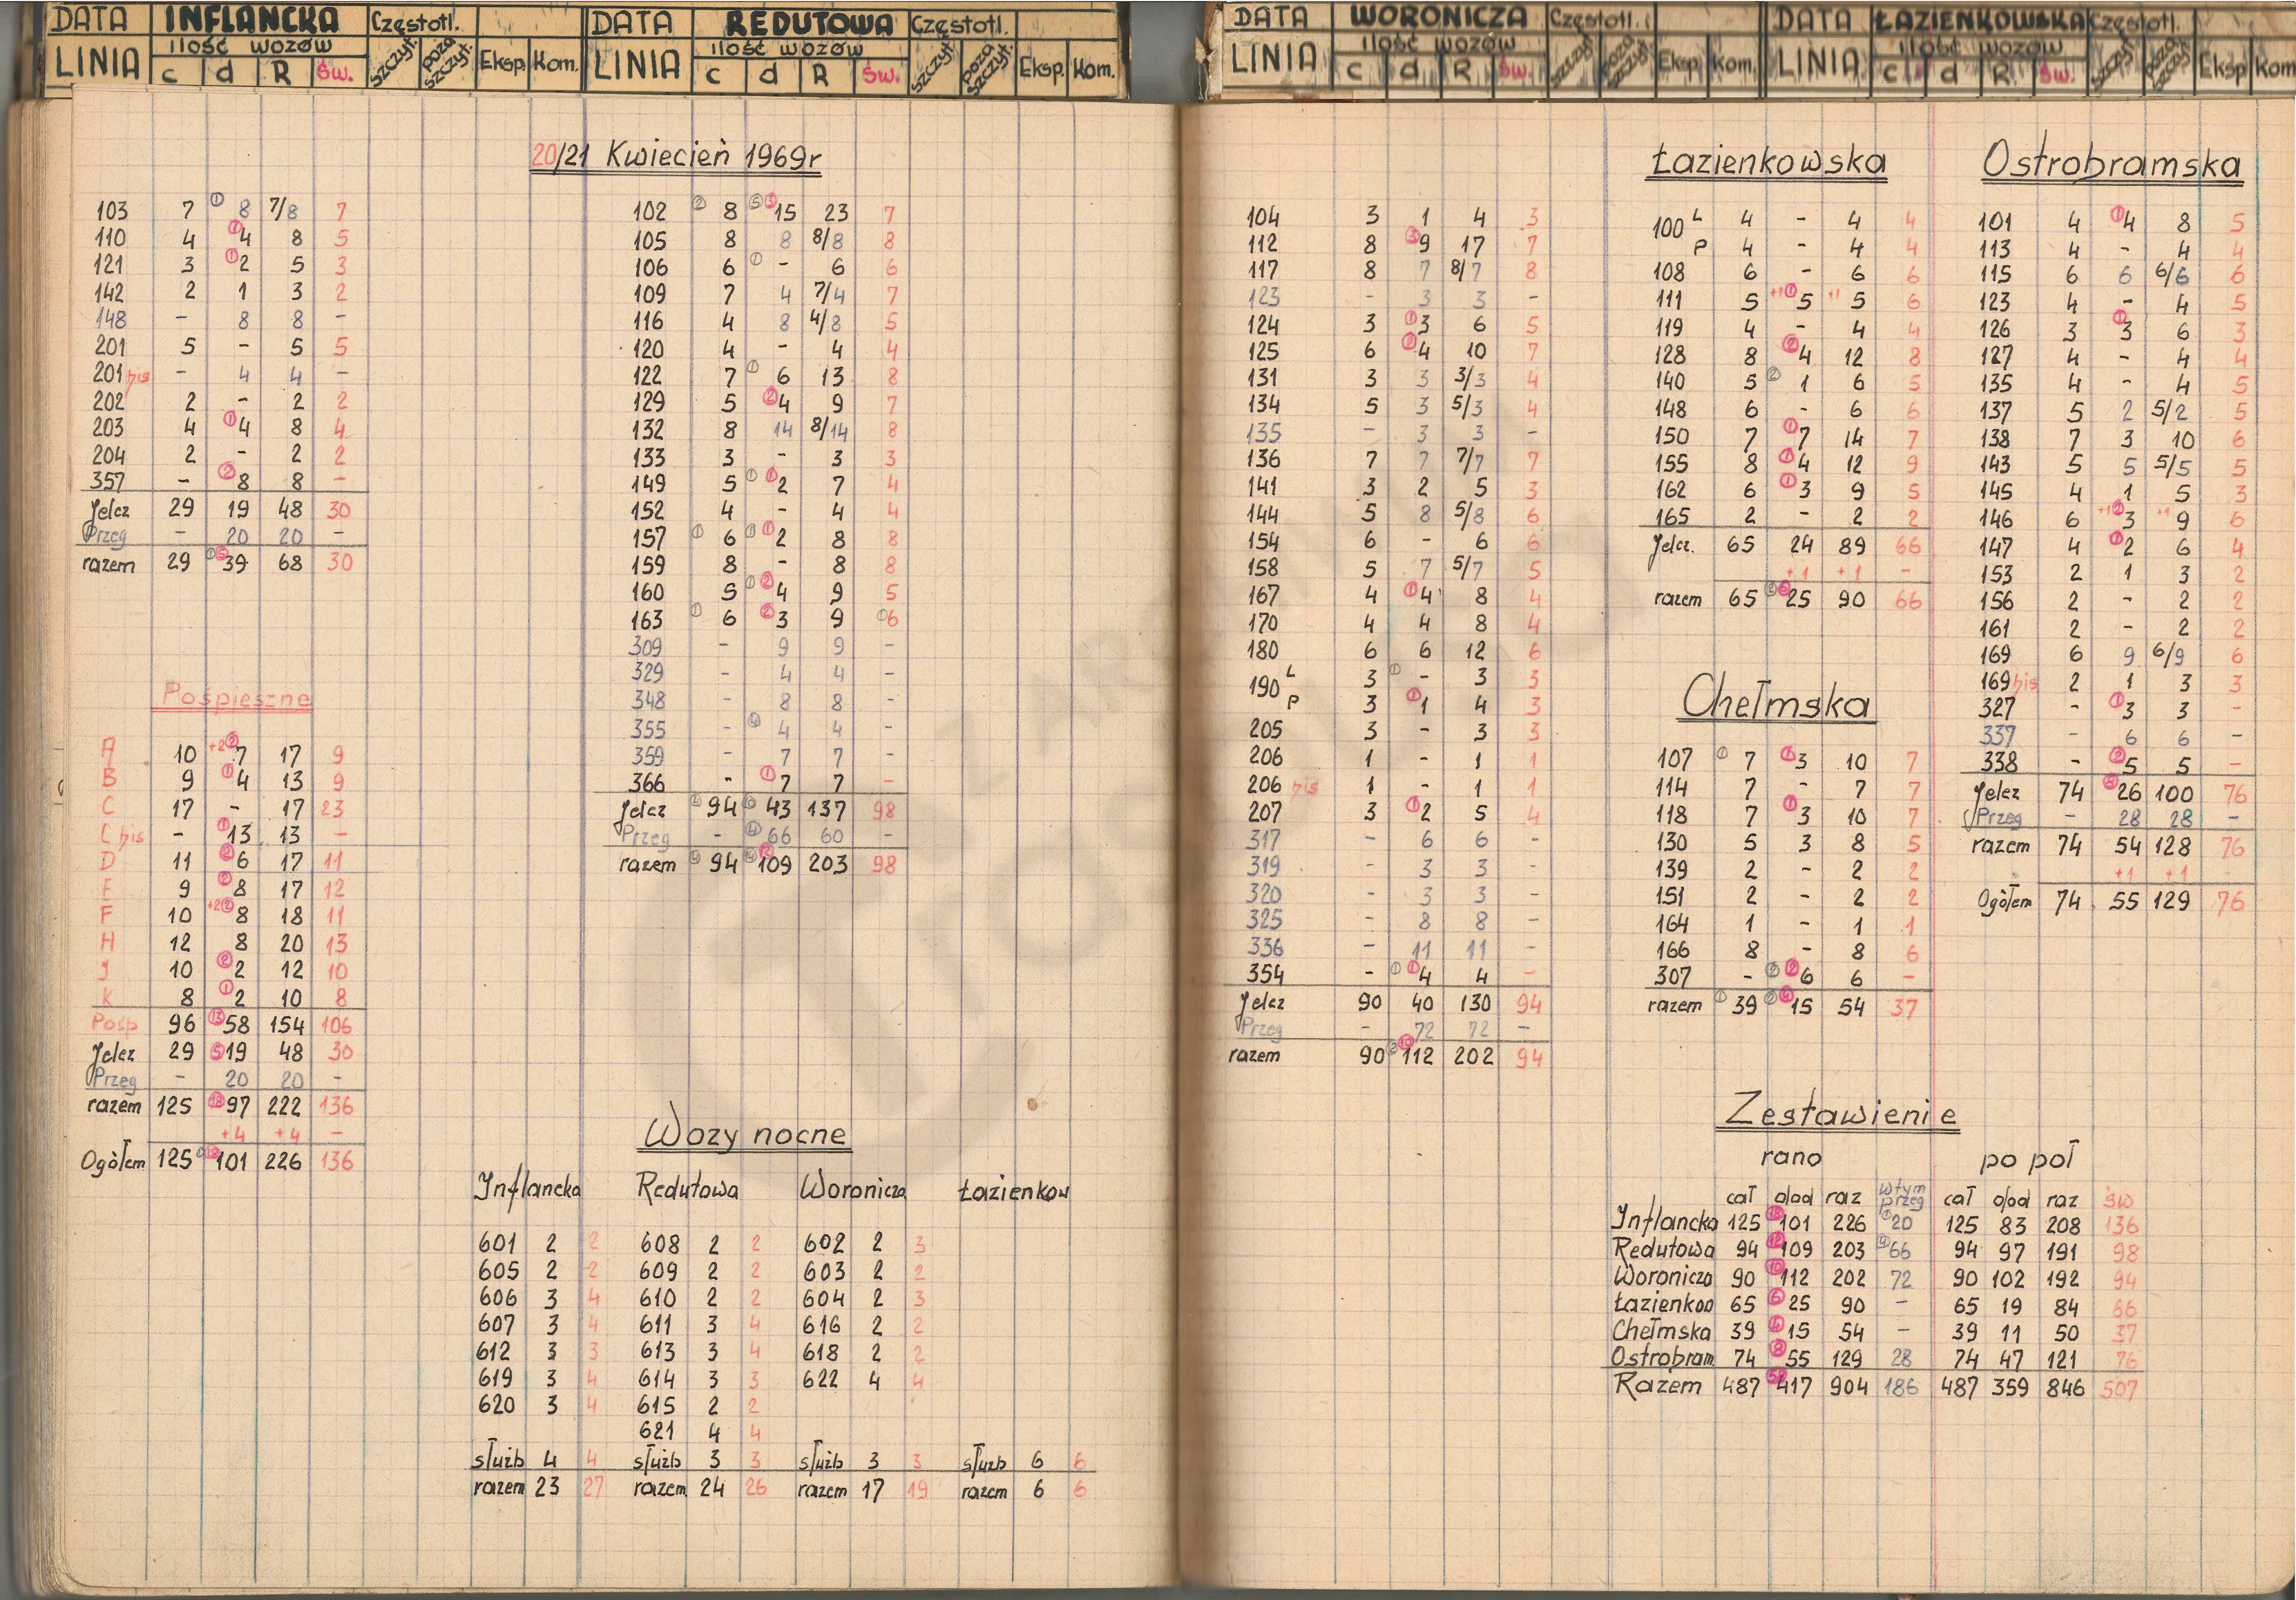 DATA INFLANCKA Częstotl. DATA REDUTOWA Częstotl.
LINIA ilość wozów c d R Św. szczyt. poza szczyt. Eksp. Kom. LINIA ilość wozów c d R Św. szczyt. poza szczyt. Eksp. Kom.
DATA WORONICZA Częstotl. DATA ŁAZIENKOWSKA Częstotl.
LINIA ilość wozów c d R Św. szczyt. poza szczyt. Eksp. Kom. LINIA ilość wozów c d R Św. szczyt. poza szczyt. Eksp Kom
20/21 Kwiecień 1969r
103 7 ① 8 7/8 7
110 4 ① 4 8 5
121 3 ① 2 5 3
142 2 1 3 2
148 - 8 8 -
201 5 - 5 5
201 bis - 4 4 -
202 2 - 2 2
203 4 ① 4 8 4
204 2 - 2 2
357 - ② 8 8 -
Jelcz 29 19 48 30
Przeg - 20 20 -
razem 29 ① ⑤ 39 68 30
Pośpieszne
A 10 +2 ② 7 17 9
B 9 ① 4 13 9
C 17 - 17 23
C bis - ① 13 13 -
D 11 ② 6 17 11
E 9 ② 8 17 12
F 10 +2 ② 8 18 11
H 12 8 20 13
J 10 ② 2 12 10
K 8 ① 2 10 8
Pośp 96 ⑬ 58 154 106
Jelcz 29 ⑤ 19 48 30
Przeg - 20 20 -
razem 125 ⑱ 97 222 136
+4 +4 -
Ogółem 125 ① ⑱ 101 226 136
102 ② 8 ⑤ ③ 15 23 7
105 8 8 8/8 8
106 6 ① - 6 6
109 7 4 7/4 7
116 4 8 4/8 5
120 4 - 4 4
122 7 ① 6 13 8
129 5 ② 4 9 7
132 8 14 8/14 8
133 3 - 3 3
149 5 ① ① 2 7 4
152 4 - 4 4
157 ① 6 ① ① 2 8 8
159 8 - 8 8
160 5 ① ② 4 9 5
163 ① 6 ② 3 9 ① 6
309 - 9 9 -
329 - 4 4 -
348 - 8 8 -
355 - ④ 4 4 -
359 - 7 7 -
366 - ① 7 7 -
Jelcz ④ 94 43 137 98
Przeg - ④ 66 60 -
razem ④ 94 ⑭ ⑫ 109 203 98
Wozy nocne
Inflancka Redutowa Woronicza Łazienkow
601 2 2 608 2 2 602 2 3
605 2 2 609 2 2 603 2 2
606 3 4 610 2 2 604 2 3
607 3 4 611 3 4 616 2 2
612 3 3 613 3 4 618 2 2
619 3 4 614 3 3 622 4 4
620 3 4 615 2 2
621 4 4
służb 4 4 służb 3 3 służb 3 3 służb 6 6
razem 23 27 razem 24 26 razem 17 19 razem 6 6
104 3 1 4 3
112 8 ③ 9 17 7
117 8 7 8/7 8
123 - 3 3 -
124 3 ① 3 6 5
125 6 ② 4 10 7
131 3 3 3/3 4
134 5 3 5/3 4
135 - 3 3 -
136 7 7 7/7 7
141 3 2 5 3
144 5 8 5/8 6
154 6 - 6 6
158 5 7 5/7 5
167 4 ① 4 8 4
170 4 4 8 4
180 6 6 12 6
190 L 3 ① - 3 3
P 3 ① 1 4 3
205 3 - 3 3
206 1 - 1 1
206 bis 1 - 1 1
207 3 ① 2 5 4
317 - 6 6 -
319 - 3 3 -
320 - 3 3 -
325 - 8 8 -
336 - 11 11 -
354 - ① ① 4 4 -
Jelcz 90 40 130 94
Przeg - 72 72 -
razem 90 ② ⑩ 112 202 94
Łazienkowska
100 L 4 - 4 4
P 4 - 4 4
108 6 - 6 6
111 5 +1 ① 5 +1 5 6
119 4 - 4 4
128 8 ② 4 12 8
140 5 ② 1 6 5
148 6 - 6 6
150 7 ① 7 14 7
155 8 ① 4 12 9
162 6 ① 3 9 5
165 2 - 2 2
Jelcz. 65 24 89 66
+1 +1 -
razem 65 ② ⑥ 25 90 66
Chełmska
107 ① 7 ① 3 10 7
114 7 - 7 7
118 7 ① 3 10 7
130 5 3 8 5
139 2 - 2 2
151 2 - 2 2
164 1 - 1 1
166 8 - 8 6
307 - ② ② 6 6 -
razem ① 39 ② ④ 15 54 37
Ostrobramska
101 4 ① 4 8 5
113 4 - 4 4
115 6 6 6/6 6
123 4 - 4 5
126 3 ① 3 6 3
127 4 - 4 4
135 4 - 4 5
137 5 2 5/2 5
138 7 3 10 6
143 5 5 5/5 5
145 4 1 5 3
146 6 +1 ② 3 +1 9 6
147 4 ① 2 6 4
153 2 1 3 2
156 2 - 2 2
161 2 - 2 2
169 6 9 6/9 6
169 bis 2 1 3 3
327 - ① 3 3 -
337 - 6 6 -
338 - ② 5 5 -
Jelcz 74 ⑧ 26 100 76
Przeg - 28 28 -
razem 74 54 128 76
+1 +1 -
Ogółem 74 55 129 76
Zestawienie
rano po poł
cał dod raz w tym przeg cał dod raz św
Inflancka 125 ⑱ 101 226 ① 20 125 83 208 136
Redutowa 94 ⑫ 109 203 ④ 66 94 97 191 98
Woronicza 90 ⑩ 112 202 72 90 102 192 94
Łazienkow 65 ⑥ 25 90 - 65 19 84 66
Chełmska 39 ④ 15 54 - 39 11 50 37
Ostrobram. 74 ⑧ 55 129 28 74 47 121 76
Razem 487 417 904 186 487 359 846 507